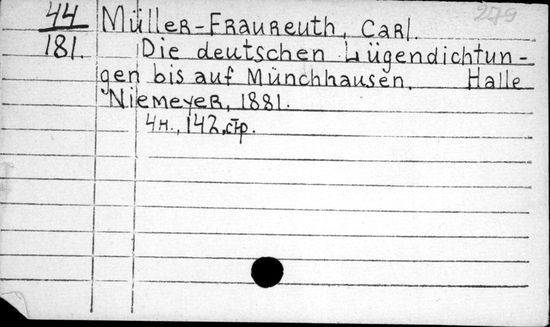 279
44 Müller-Fraureuth, Carl.
181. Die deutschen Lügendichtun-
gen bis auf Münchhausen. Halle
Niemeyer, 1881.
4н., 142, стр.